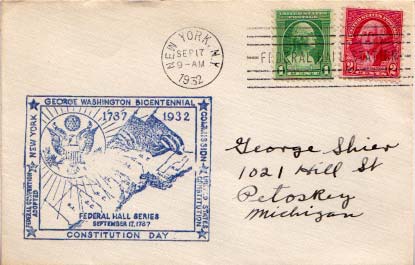 NEW YORK, N.Y.
SEP 17
9-AM
1932
GEORGE WASHINGTON BICENTENNIAL
1787 1932
NEW YORK
COMMISSION
UNITED STATES
CONSTITUTION
ADOPTED
FEDERAL HALL SERIES
SEPTEMBER 17, 1787
CONSTITUTION DAY
George Shier
1021 Hill St
Petoskey
Michigan